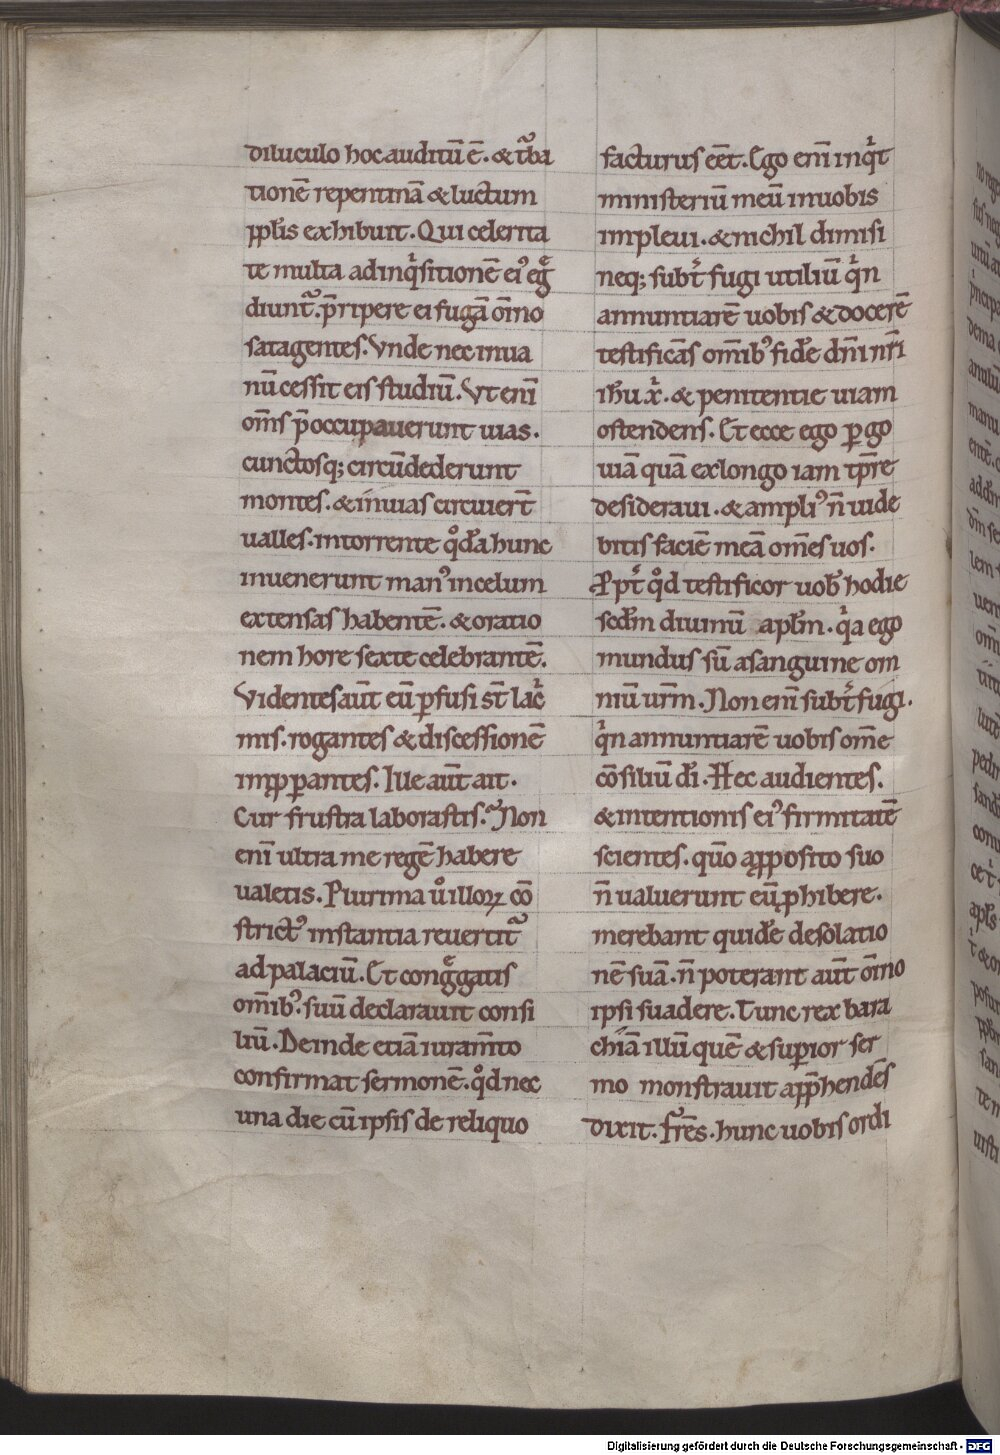 diluculo hoc auditū ē. & tͬba
tionē repentinā & luctum
ppl̄is exhibuit. Qui celerita
te multa ad inqͥsitionē ei᾽ egͬ
diunt᷑. p̄ripere ei fugā om̄ino
satagentes. Vnde nec inua
nū cessit eis studiū. Vt eni᷑
om̄s p̄occupauerunt uias.
cunctosq; circūdederunt
montes. & inuias circuiert̄
ualles. in torrente qͦdā hunc
inuenerunt man᾽ in celum
extensas habentē. & oratio
nem hore sexte celebrantē.
Videntes aūt eū ꝑfusi st̄ lacͥ
mis. rogantes & discessionē
imꝓꝑantes. Ille aūt ait.
Cur frustra laborastis? Non
eni᷑ ultra me regē habere
ualetis. Plurima uͦ illoꝝ cō
strict᾽ instantia reuertit᷑
ad palaciū. Et congͬgatis
om̄ib᾽. suū declarauit consi
liū. Deinde etiā iuram̄to
confirmat sermonē. qͦd nec
una die cū ipsis de reliquo
facturus eēt. Ego eni᷑ inqͥt
ministeriū meū in uobis
impleui. & nichil dimisi
neq; subt͛fugi utiliū qͥn
annuntiarē uobis & docerē
testificās om̄ib᾽ fidē dn̄i nr̄i
ih̄u xͥ. & penitentie uiam
ostendens. Et ecce ego ꝑgo
uiā quā ex longo iam tp̄re
desideraui. & ampli᾽ n̄ uide
bitis faciē meā om̄es uos.
Ꝓpt͛ qͦd testificor uob̄ hodie
scdm̄ diuinū apl̄m. qͥa ego
mundus sū a sanguine om
niū ur̄m. Non eni᷑ subt͛fugi.
qͥn annuntiarē uobis om̄e
cōsiliū dī. Hec audientes.
& intentionis ei᾽ firmitatē
scientes. quō a ꝓposito suo
n̄ ualuerunt eū ꝓhibere.
merebant quidē desolatio
nē suā. n̄ poterant aūt om̄ino
ipsi suadere. Tunc rex bara
chiā illū quē & suꝑior ser
mo monstrauit app̄hendēs
dixit. fr̄es. hunc uobis ordi
Digitalisierung gefördert durch die Deutsche Forschungsgemeinschaft - DFG